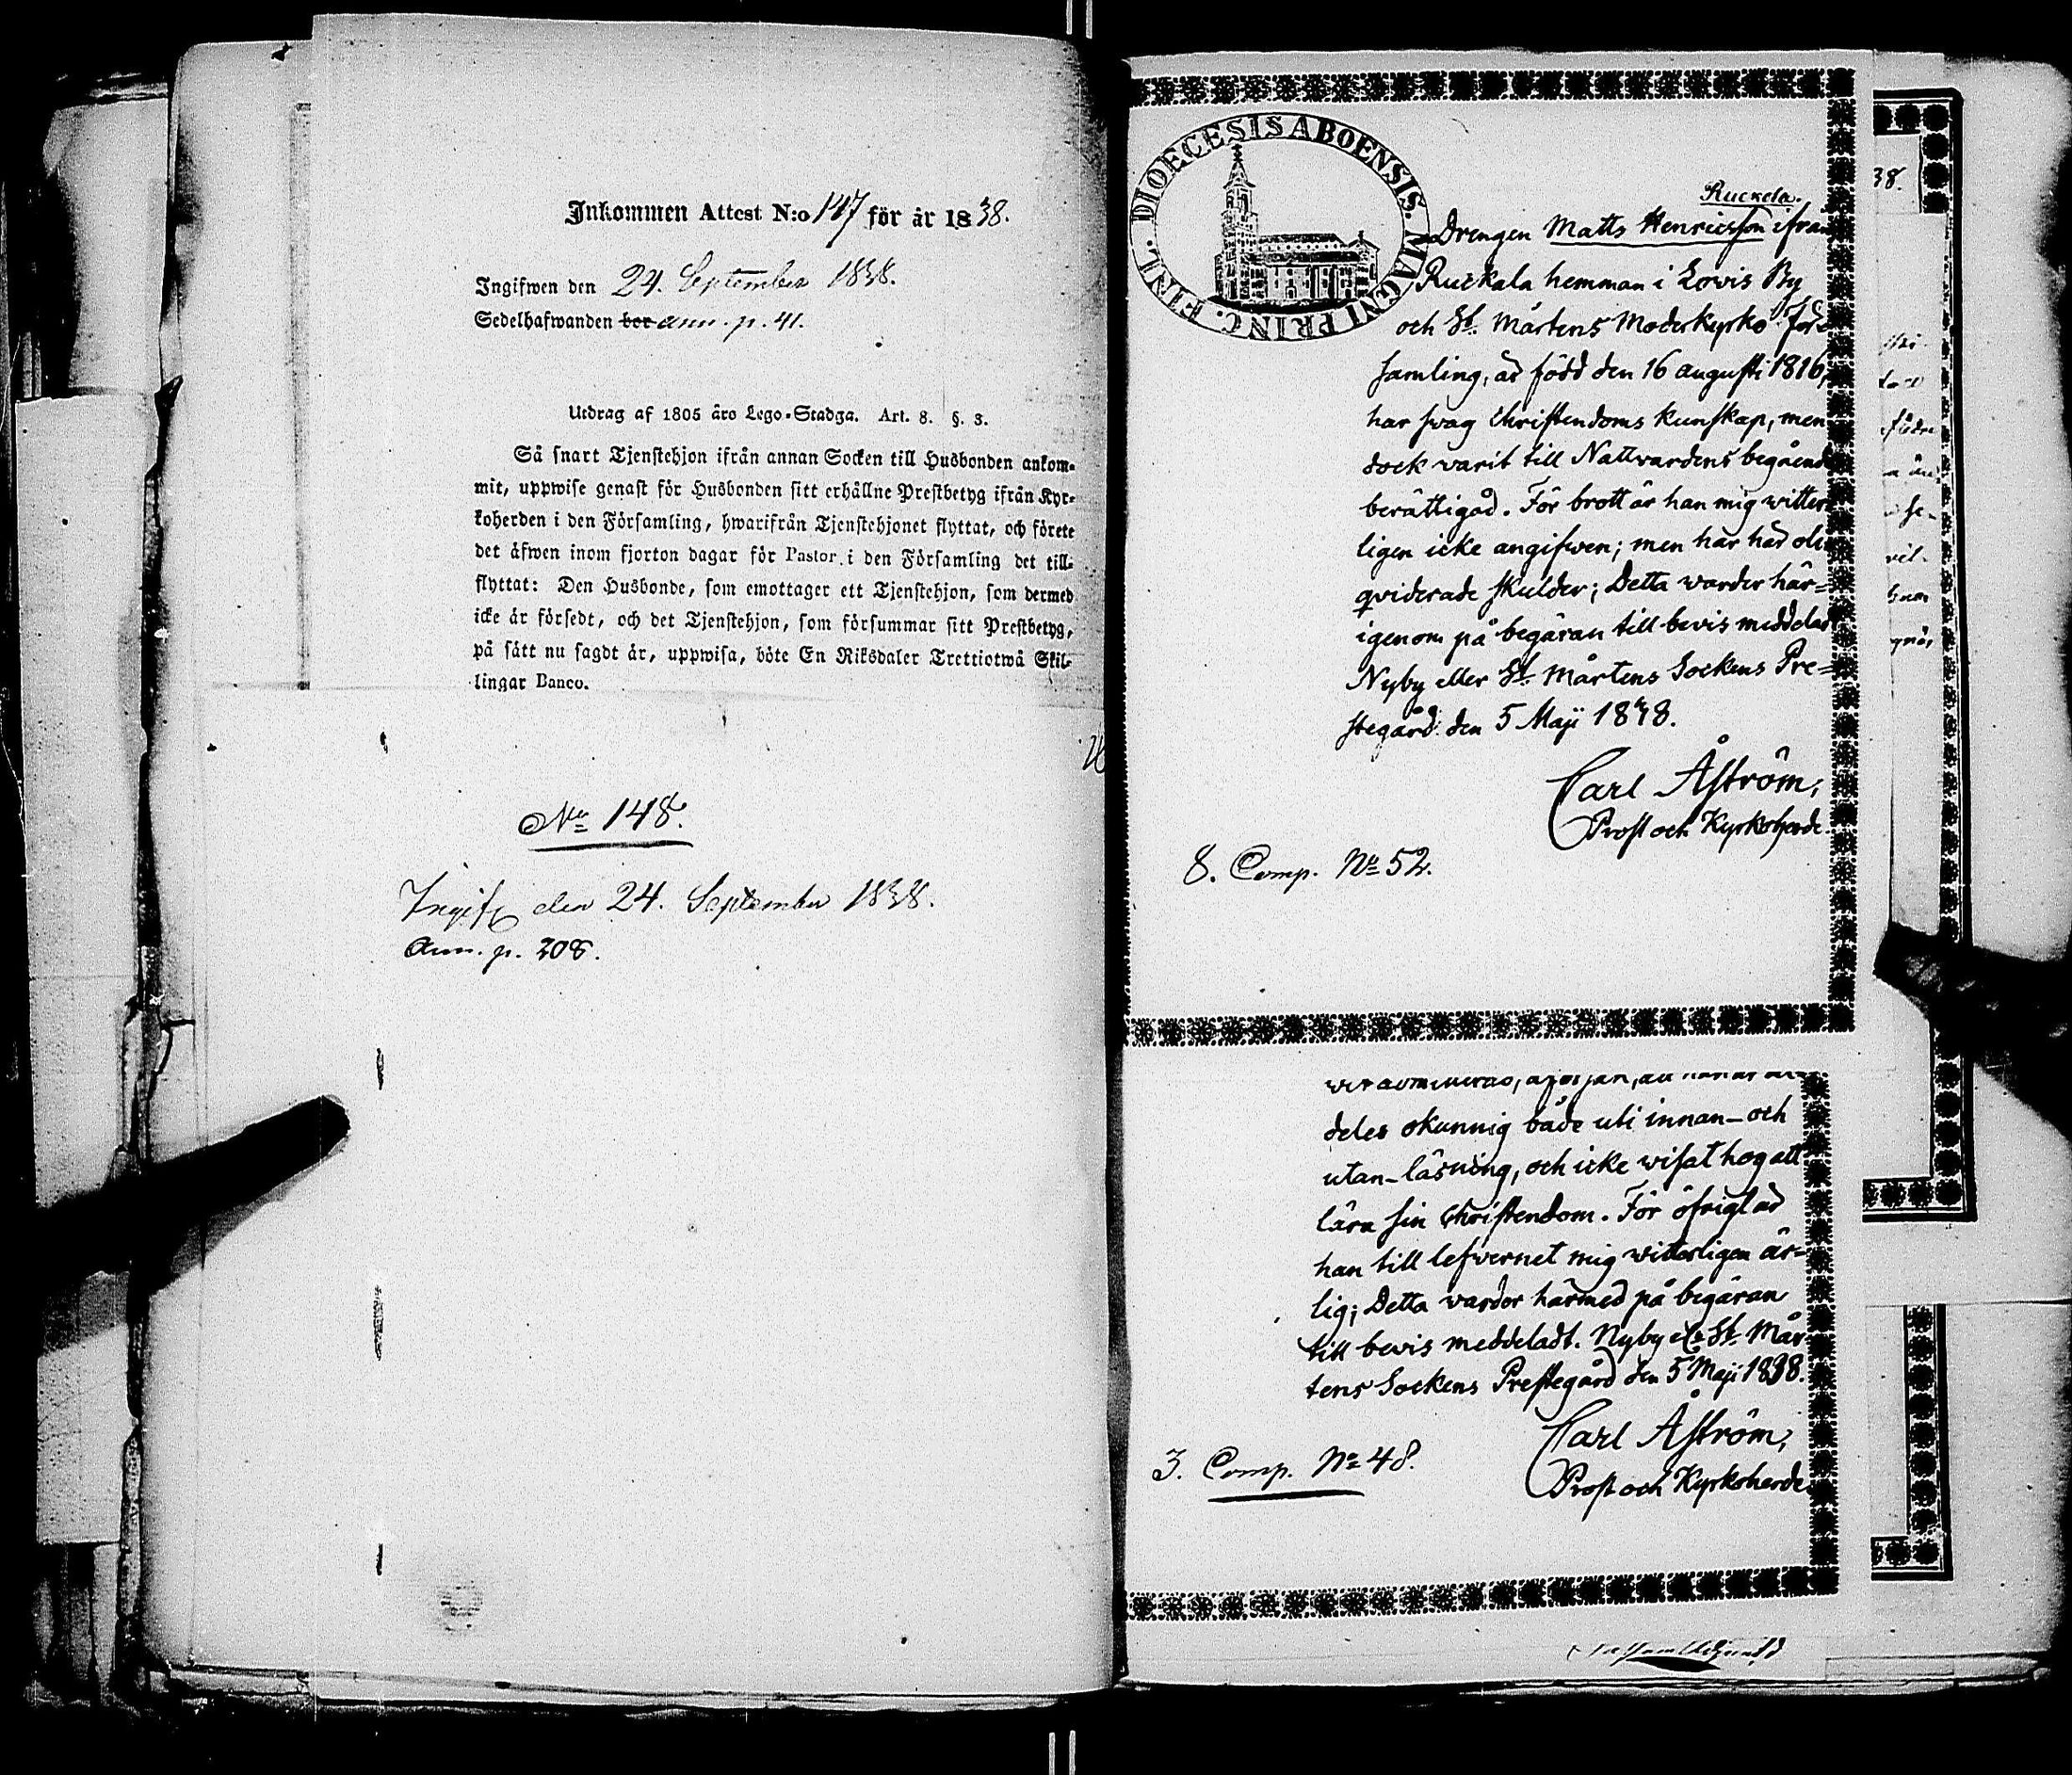 Inkommen Attest N:o 147 för år 1838.
Ingifwen den 24. September 1838.
Sedelhafwanden bor ann. p. 41.
Utdrag af 1805 års Lego-Stadga. Art. 8. §. 3.
Så snart Tjenstehjon ifrån annan Socken till Husbonden ankom-
mit, uppwise genast för Husbonden sitt erhållne Prestbetyg ifrån Kyr-
koherden i den Församling, hwarifrån Tjenstehjonet flyttat, och förete
det äfwen inom fjorton dagar för Pastor i den Församling det till-
flyttat: Den Husbonde, som emottager ett Tjenstehjon, som dermed
icke är försedt, och det Tjenstehjon, som försummar sitt Prestbetyg,
på sätt nu sagdt är, uppwisa, böte En Riksdaler Trettiotwå Skil-
lingar Banco.
No 148.
Ingifv den 24. September 1838.
Ann. p. 208.
DIOECESIS ABOENSIS. MAGNI PRINC. FINL.
Ruckela.
Drengen Matts Henricsson ifrån
Ruckala hemman i Lowis By
och St. Mårtens Moderkyrko För-
samling, är född den 16 augusti 1816,
har swag Christendoms kunskap, men
dock warit till Nattvardens begående
berättigad. För brott är han mig witter-
ligen icke angifwen; men har här oli-
qviderade skulder; Detta warder här-
igenom på begäran till bevis meddelat
Nyby eller St. Mårtens Sockens Pre-
stegård den 5 Maji 1838.
Carl Åström,
Prost och Kyrkoherde.
8. Comp. No 52.
deles okunnig både uti innan- och
utan-läsning, och icke wisat hog att
lära sin Christendom. För öfrigt är
han till lefvernet mig witterligen är-
lig; Detta varder härmed på begäran
till bevis meddeladt. Nyby elr St. Mår-
tens Sockens Prestegård den 5 Maji 1838.
Carl Åström,
Prost och Kyrkoherde
3. Comp. No 48.
38.